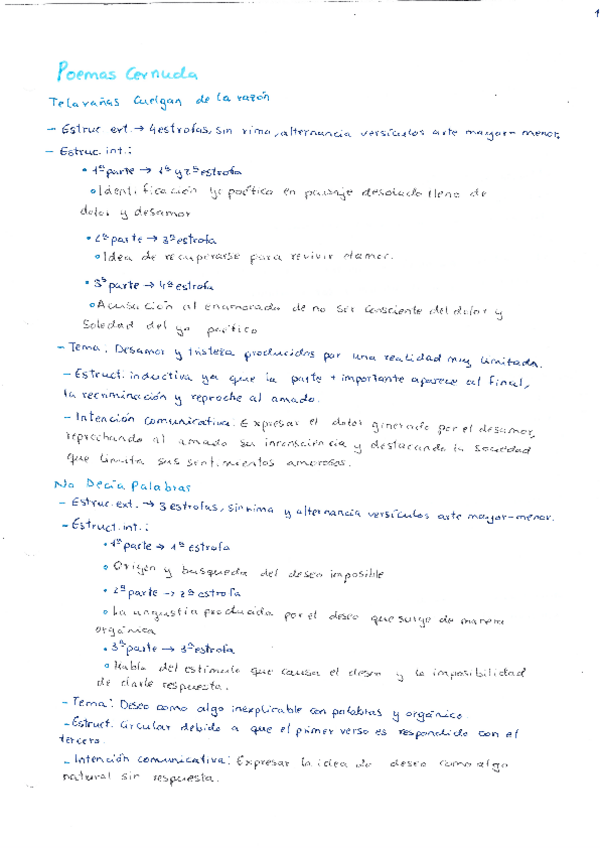 1
Poemas Cernuda
Telarañas Cuelgan de la razón
- Estruc ext. → 4 estrofas, sin rima, alternancia versículos arte mayor-menor.
- Estruc. int.:
• 1ª parte → 1ª y 2ª estrofa
Identificación yo poético en paisaje desolado lleno de
dolor y desamor
• 2ª parte → 3ª estrofa
Idea de recuperarse para revivir
• 3ª parte → 4ª estrofa
Acusación al enamorado de no ser consciente del dolor y
Soledad del yo poético
- Tema. Desamor y tristeza producidos por una realidad muy limitada.
- Estruct. inductiva ya que la parte + importante aparece al final,
la recriminación y reproche al amado.
- Intención comunicativa. Expresar el dolor generado por el desamor,
reprochando al amado su inconsciencia y destacando la sociedad
que limita sus sentimientos amorosos.
No Decía Palabras
- Estruc. ext. → 3 estrofas, sin rima y alternancia versículos arte mayor-menor.
- Estruct. int.:
• 1ª parte → 1ª estrofa
Origen y busqueda del deseo imposible
• 2ª parte → 2ª estrofa
La angustia producida por el deseo que surge de manera
orgánica
• 3ª parte → 3ª estrofa
Habla del estimulo que causa el deseo y la imposibilidad
de darle respuesta.
- Tema: Deseo como algo inexplicable con palabras y orgánico.
- Estruct. Circular debido a que el primer verso es respondido con el
tercero.
- Intención comunicativa: Expresar la idea de deseo como algo
natural sin respuesta.